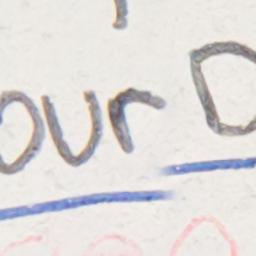 our D